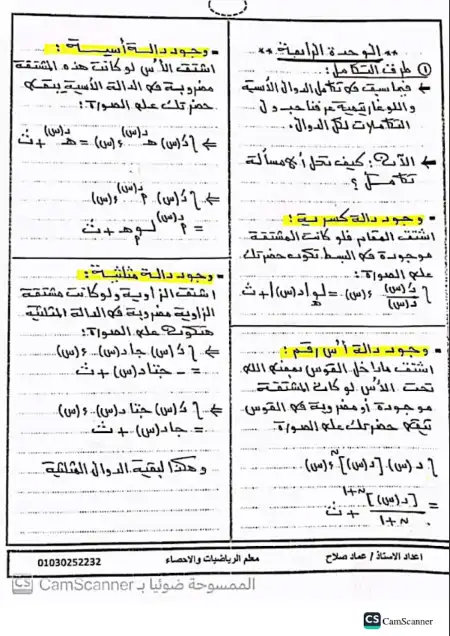 ** الوحدة الرابعة **
① طرق التكامل:
← فيما سبق في تكامل الدوال الأسية
واللوغاريتمية عرفنا جدول
التكاملات لكل الدوال.
← الآن: كيف نحل أي مسألة
تكامل ؟
▪ وجود دالة كسرية :
اشتق المقام فلو كانت المشتقة
موجودة في البسط تكون حضرتك
على الصورة:
∫ دَ(س)/د(س) ء(س) = لو_هـ |د(س)| + ث
▪ وجود دالة أس رقم :
اشتق ما داخل القوس
تحت الأس لو كانت المشتقة
موجودة أو مضروبة في القوس
تبقى حضرتك على الصورة
∫ دَ(س) . [د(س)]^ن ء(س)
= [د(س)]^(ن+١) / ن+١ + ث
▪ وجود دالة أسية :
اشتق الأس لو كانت هذه المشتقة
مضروبة في الدالة الأسية يبقى
حضرتك على الصورة:
⇐ ∫ دَ(س) هـ^د(س) ء(س) = هـ^د(س) + ث
⇐ ∫ دَ(س) . م^د(س) . ء(س)
= م^د(س) لو م هـ + ث
▪ وجود دالة مثلثية :
اشتق الزاوية ولو كانت مشتقة
الزاوية مضروبة في الدالة المثلثية
هتكون على الصورة:
⇐ ∫ دَ(س) جا د(س) . ء(س)
= - جتا د(س) + ث
⇐ ∫ دَ(س) جتا د(س) . ء(س)
= جا د(س) + ث
وهكذا لبقية الدوال المثلثية
اعداد الاستاذ / عماد صلاح
معلم الرياضيات والاحصاء
01030252232
الممسوحة ضوئيا بـ CamScanner
CS CamScanner